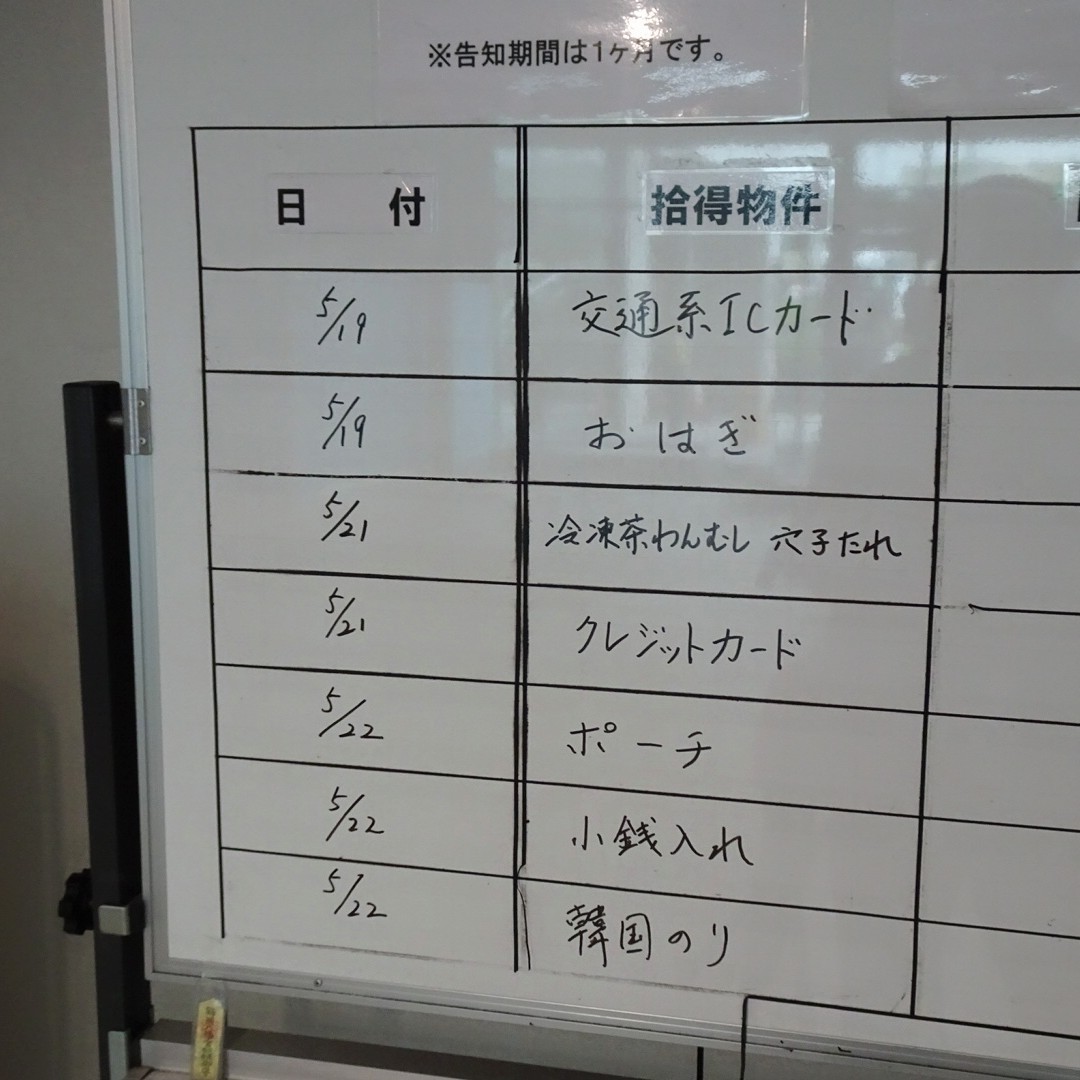 ※告知期間は1ヶ月です。
日 付 拾得物件
5/19 交通系ICカード
5/19 おはぎ
5/21 冷凍茶わんむし 穴子たれ
5/21 クレジットカード
5/22 ポーチ
5/22 小銭入れ
5/22 韓国のり